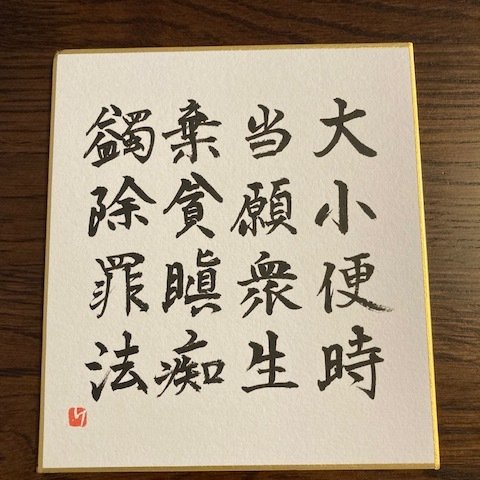 大小便時
当願衆生
棄貪瞋痴
蠲除罪法